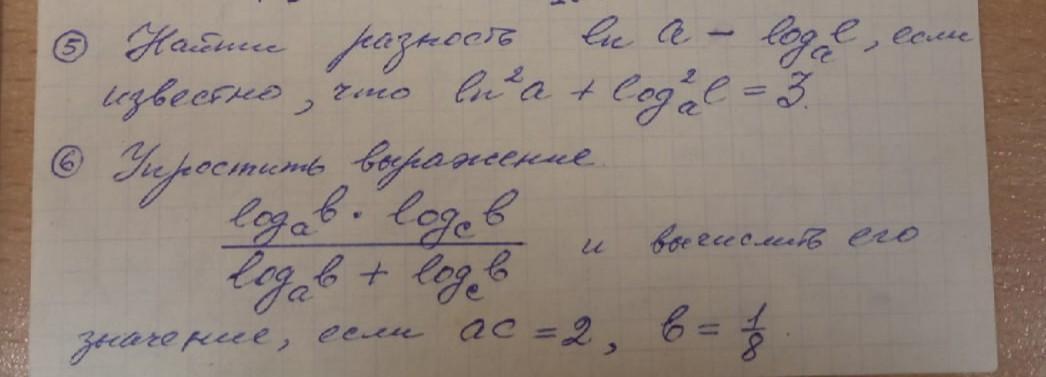 ⑤ Найти разность ln a − logₐe, если
известно, что ln²a + log²ₐe = 3.
⑥ Упростить выражение
logₐb · log_c b
logₐb + log_c b
и вычислить его
значение, если ac = 2, b = 1/8.